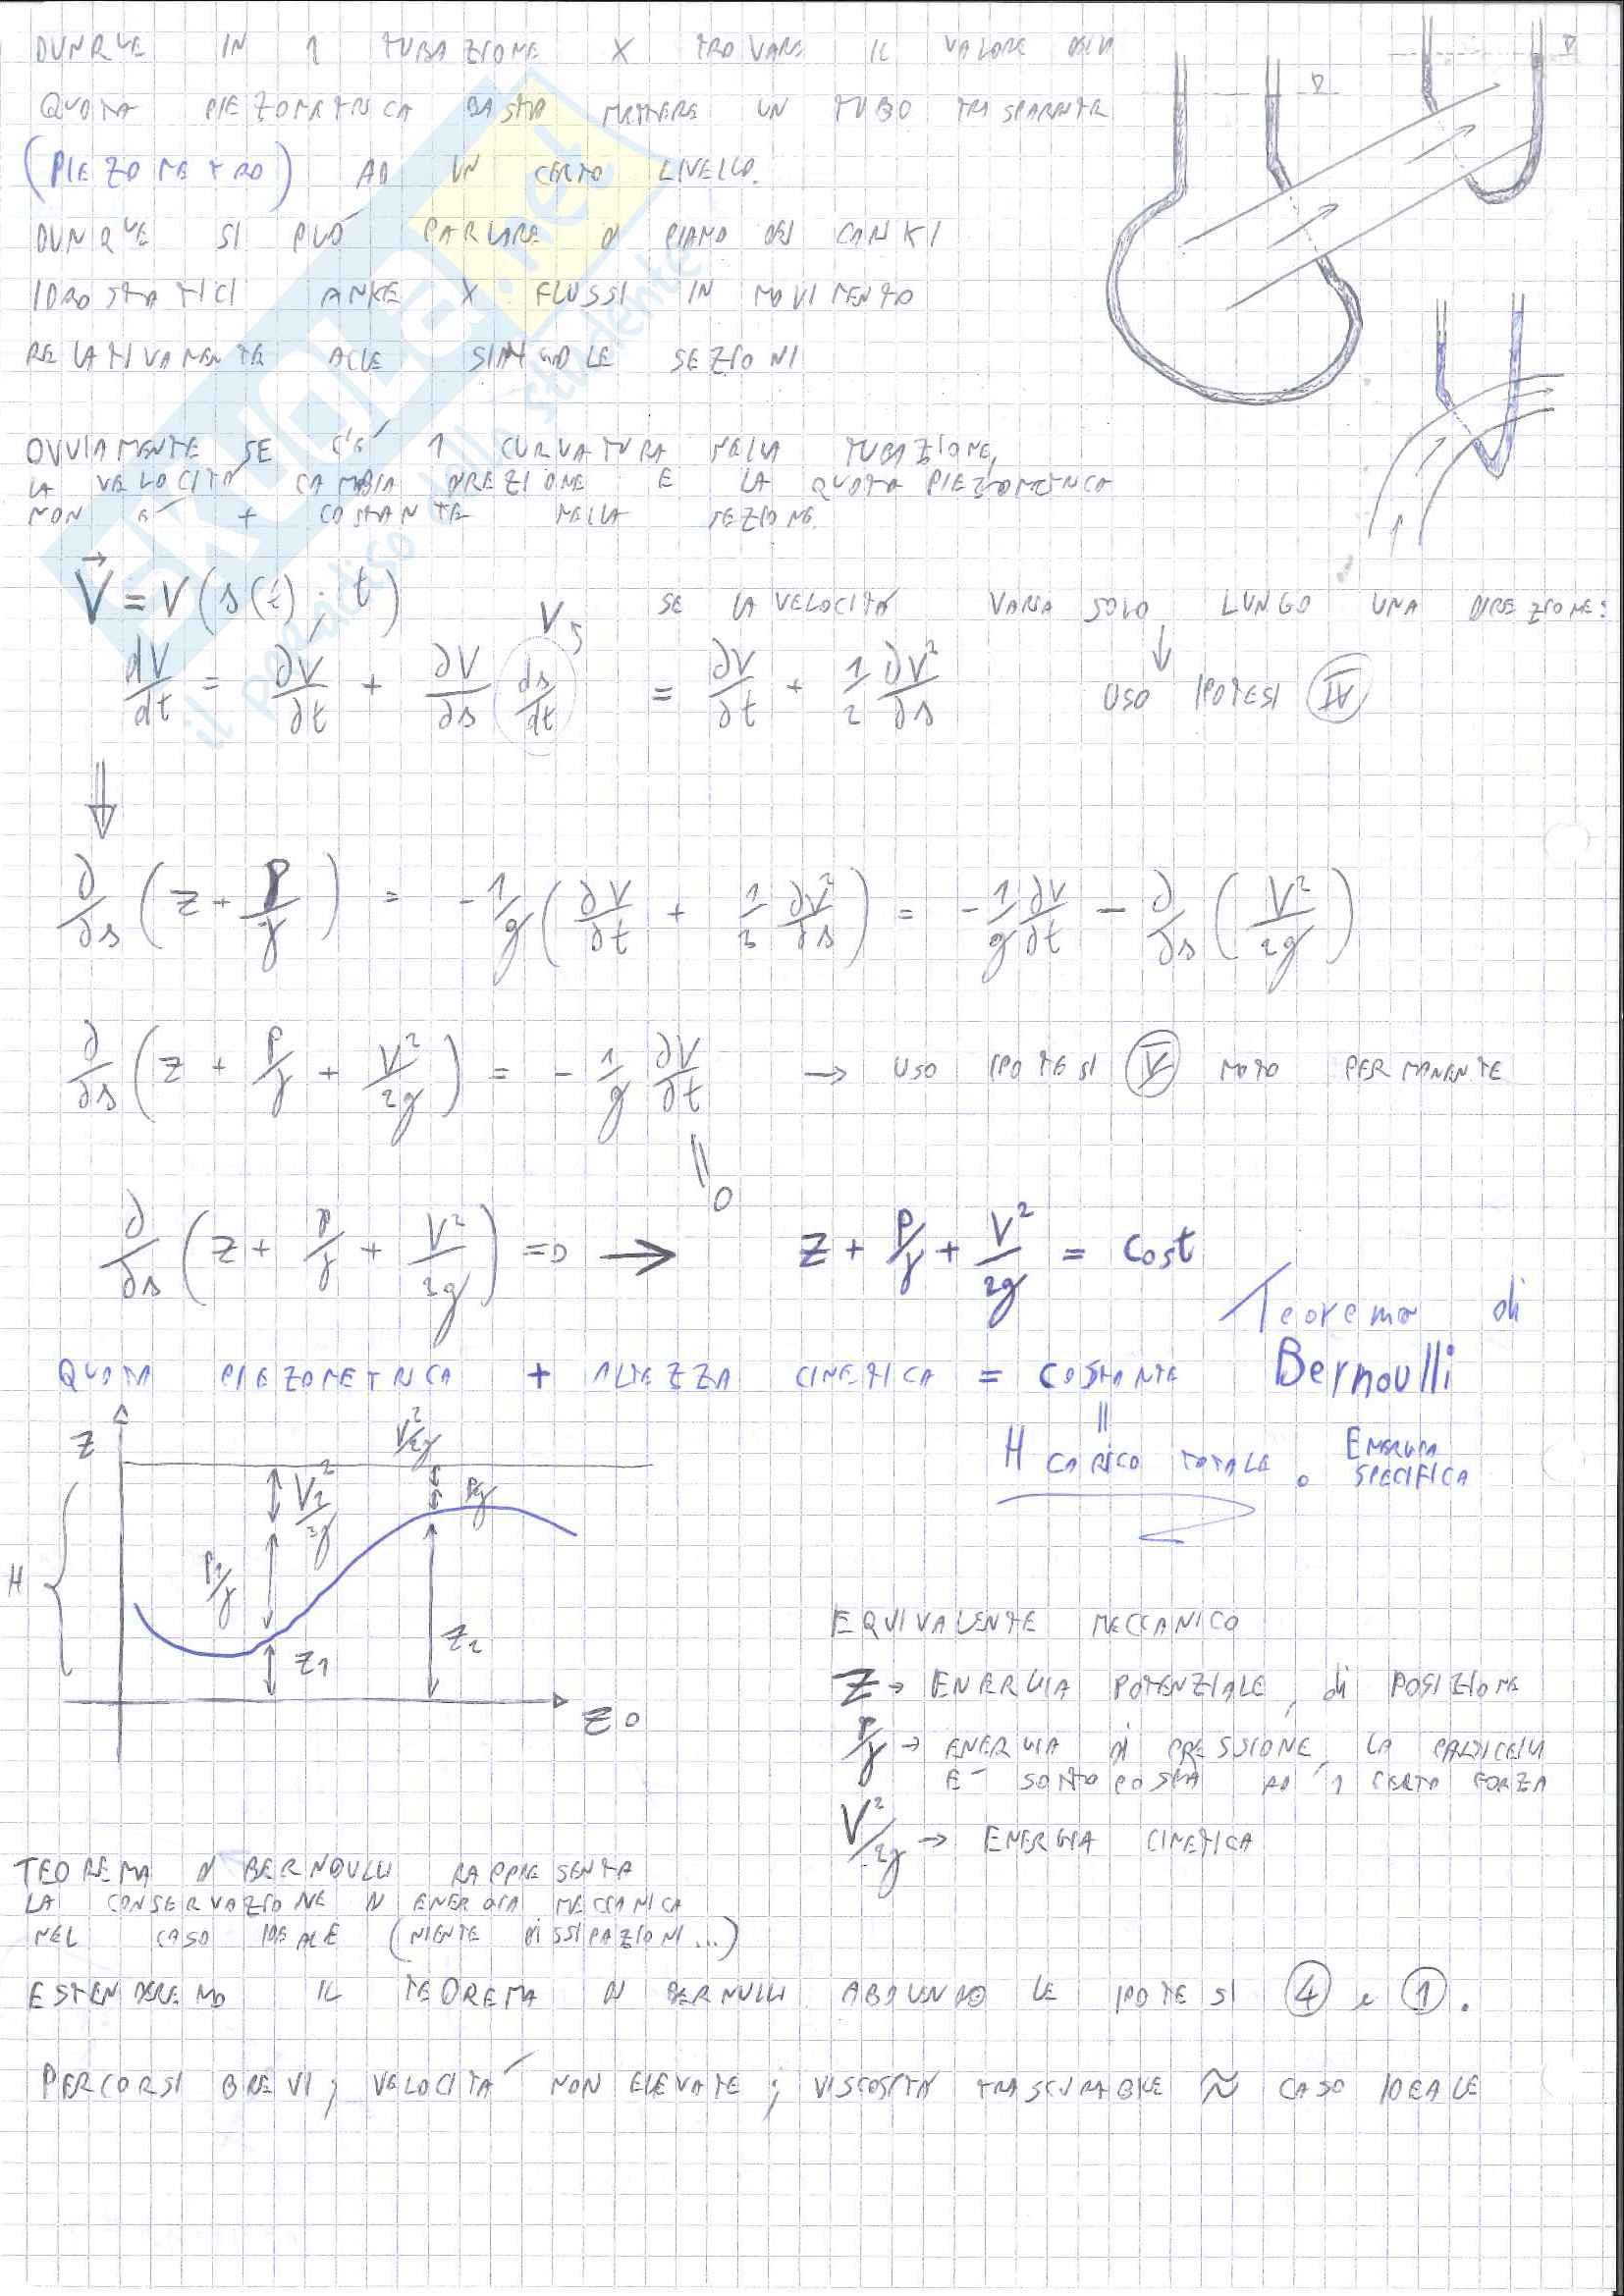 DUNQUE IN 1 TUBAZIONE X TROVARE IL VALORE DELLA
QUOTA PIEZOMETRICA BASTA METTERE UN TUBO TRASPARENTE
(PIEZOMETRO) AD UN CERTO LIVELLO.
DUNQUE SI PUÒ PARLARE DI PIANO DEI CARIKI
IDROSTATICI ANKE X FLUSSI IN MOVIMENTO
RELATIVAMENTE ALLE SINGOLE SEZIONI
OVVIAMENTE SE C'È 1 CURVATURA NELLA TUBAZIONE,
LA VELOCITÀ CAMBIA DIREZIONE E LA QUOTA PIEZOMETRICA
NON È + COSTANTE NELLA SEZIONE.
V⃗ = V(s(t); t) SE LA VELOCITÀ VARIA SOLO LUNGO UNA DIREZIONE:
dV/dt = ∂V/∂t + ∂V/∂s ds/dt = ∂V/∂t + 1/2 ∂V²/∂s USO IPOTESI IV
V
⇓
∂/∂s (z + p/γ) = - 1/g (∂V/∂t + 1/2 ∂V²/∂s) = - 1/g ∂V/∂t - ∂/∂s (V²/2g)
∂/∂s (z + p/γ + V²/2g) = - 1/g ∂V/∂t → USO IPOTESI V MOTO PERMANENTE
= 0
∂/∂s (z + p/γ + V²/2g) = 0 → z + p/γ + V²/2g = cost
Teorema di
Bernoulli
QUOTA PIEZOMETRICA + ALTEZZA CINETICA = COSTANTE
=
H CARICO TOTALE o ENERGIA SPECIFICA
Z
V²/2g
V₁²/2g
P/γ
P₁/γ
H
Z₁
Z₂
Z=0
EQUIVALENTE MECCANICO
Z → ENERGIA POTENZIALE, di POSIZIONE
P/γ → ENERGIA di PRESSIONE, LA PARTICELLA
È SOTTOPOSTA AD 1 CERTA FORZA
V²/2g → ENERGIA CINETICA
TEOREMA DI BERNOULLI RAPPRESENTA
LA CONSERVAZIONE DI ENERGIA MECCANICA
NEL CASO IDEALE (NIENTE DISSIPAZIONI...)
ESTENDEREMO IL TEOREMA DI BERNULLI ABOLENDO LE IPOTESI 4 e 1.
PERCORSI BREVI; VELOCITÀ NON ELEVATE; VISCOSITÀ TRASCURABILE ≈ CASO IDEALE
SKUOLA.net
il paradiso dello studente